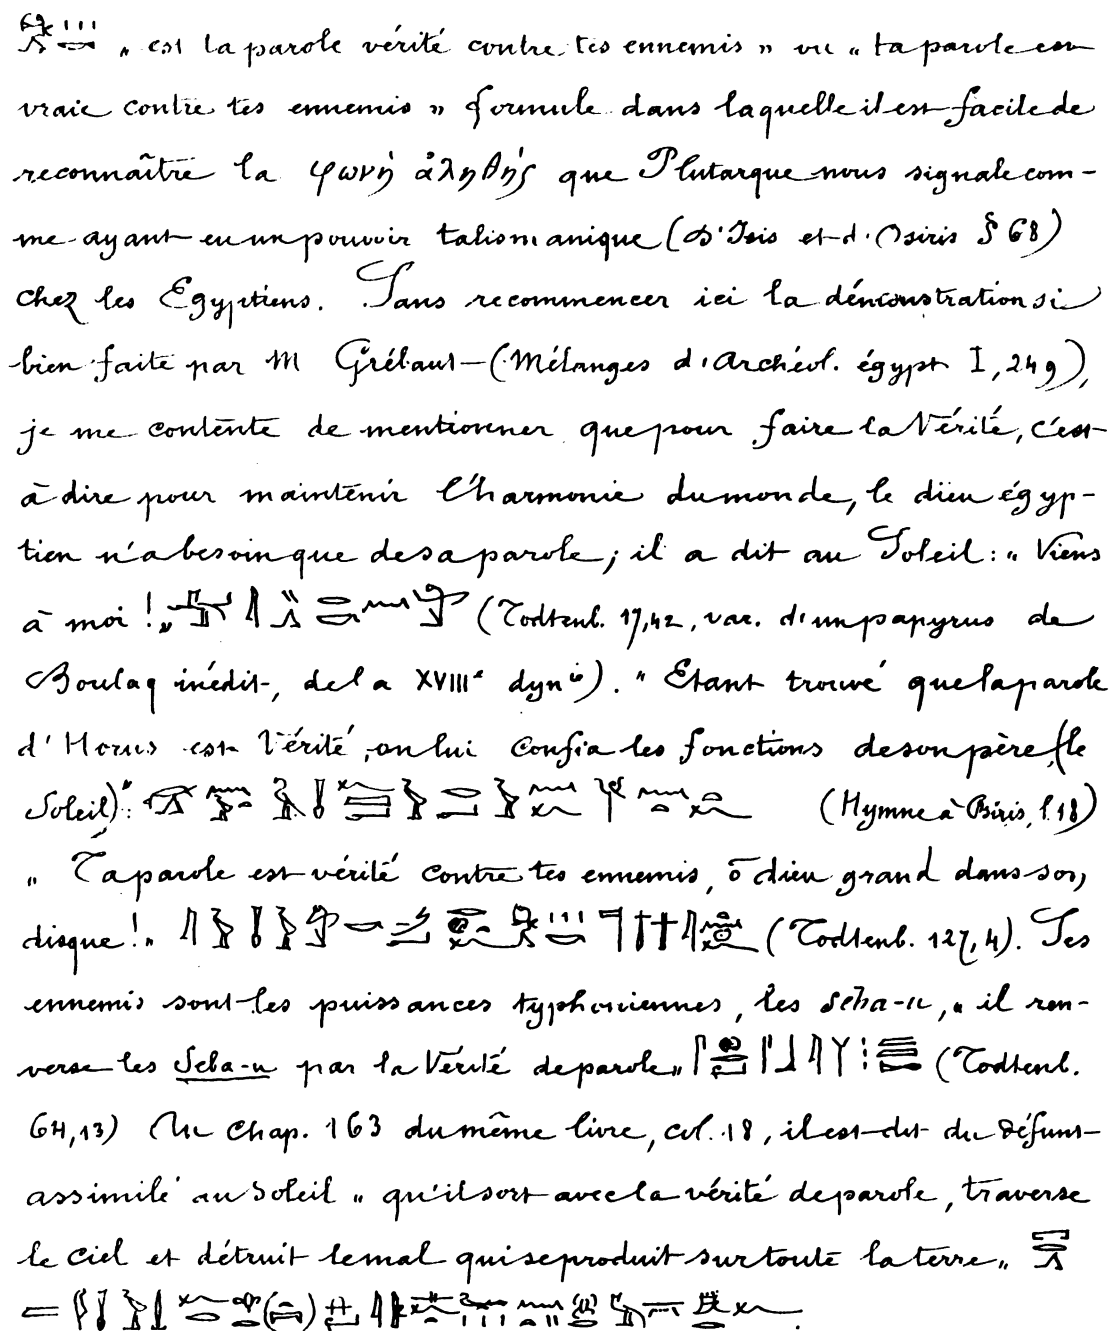 « est la parole vérité contre tes ennemis » ou « ta parole est
vraie contre tes ennemis » formule dans laquelle il est facile de
reconnaître la φωνή ἀληθής que Plutarque nous signale com-
me ayant eu un pouvoir talismanique (D'Isis et d'Osiris § 68)
chez les Egyptiens. Sans recommencer ici la démonstration si
bien faite par M Grébaut (Mélanges d'Archéol. égypt I, 249),
je me contente de mentionner que pour faire la Vérité, c'est
à dire pour maintenir l'harmonie du monde, le dieu égyp-
tien n'a besoin que de sa parole; il a dit au Soleil: « Viens
à moi ! » (Todtenb. 17,42, var. d'un papyrus de
Boulaq inédit, de la XVIIIe dynie). « Etant trouvé que la parole
d'Horus est Vérité, on lui confia les fonctions de son père (le
Soleil) »: (Hymne à Osiris, l. 18)
« Ta parole est vérité contre tes ennemis, ô dieu grand dans son
disque ! » (Todtenb. 127, 4). Ses
ennemis sont les puissances typhoniennes, les Seba-u, « il ren-
verse les Seba-u par la Vérité de parole » (Todtenb.
64,13) Au Chap. 163 du même livre, col. 18, il est dit du défunt
assimilé au Soleil « qu'il sort avec la vérité de parole, traverse
le ciel et détruit le mal qui se produit sur toute la terre »